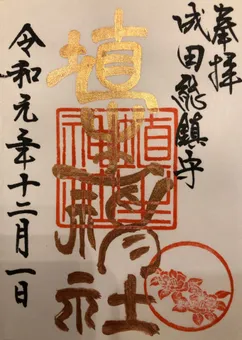 奉拝
成田総鎮守
埴生神社
令和元年十二月一日